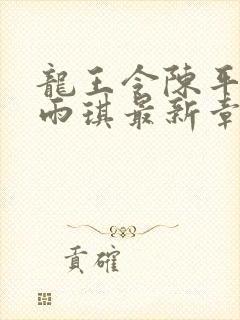 龍王令陳平
雨琪最新章
貢確